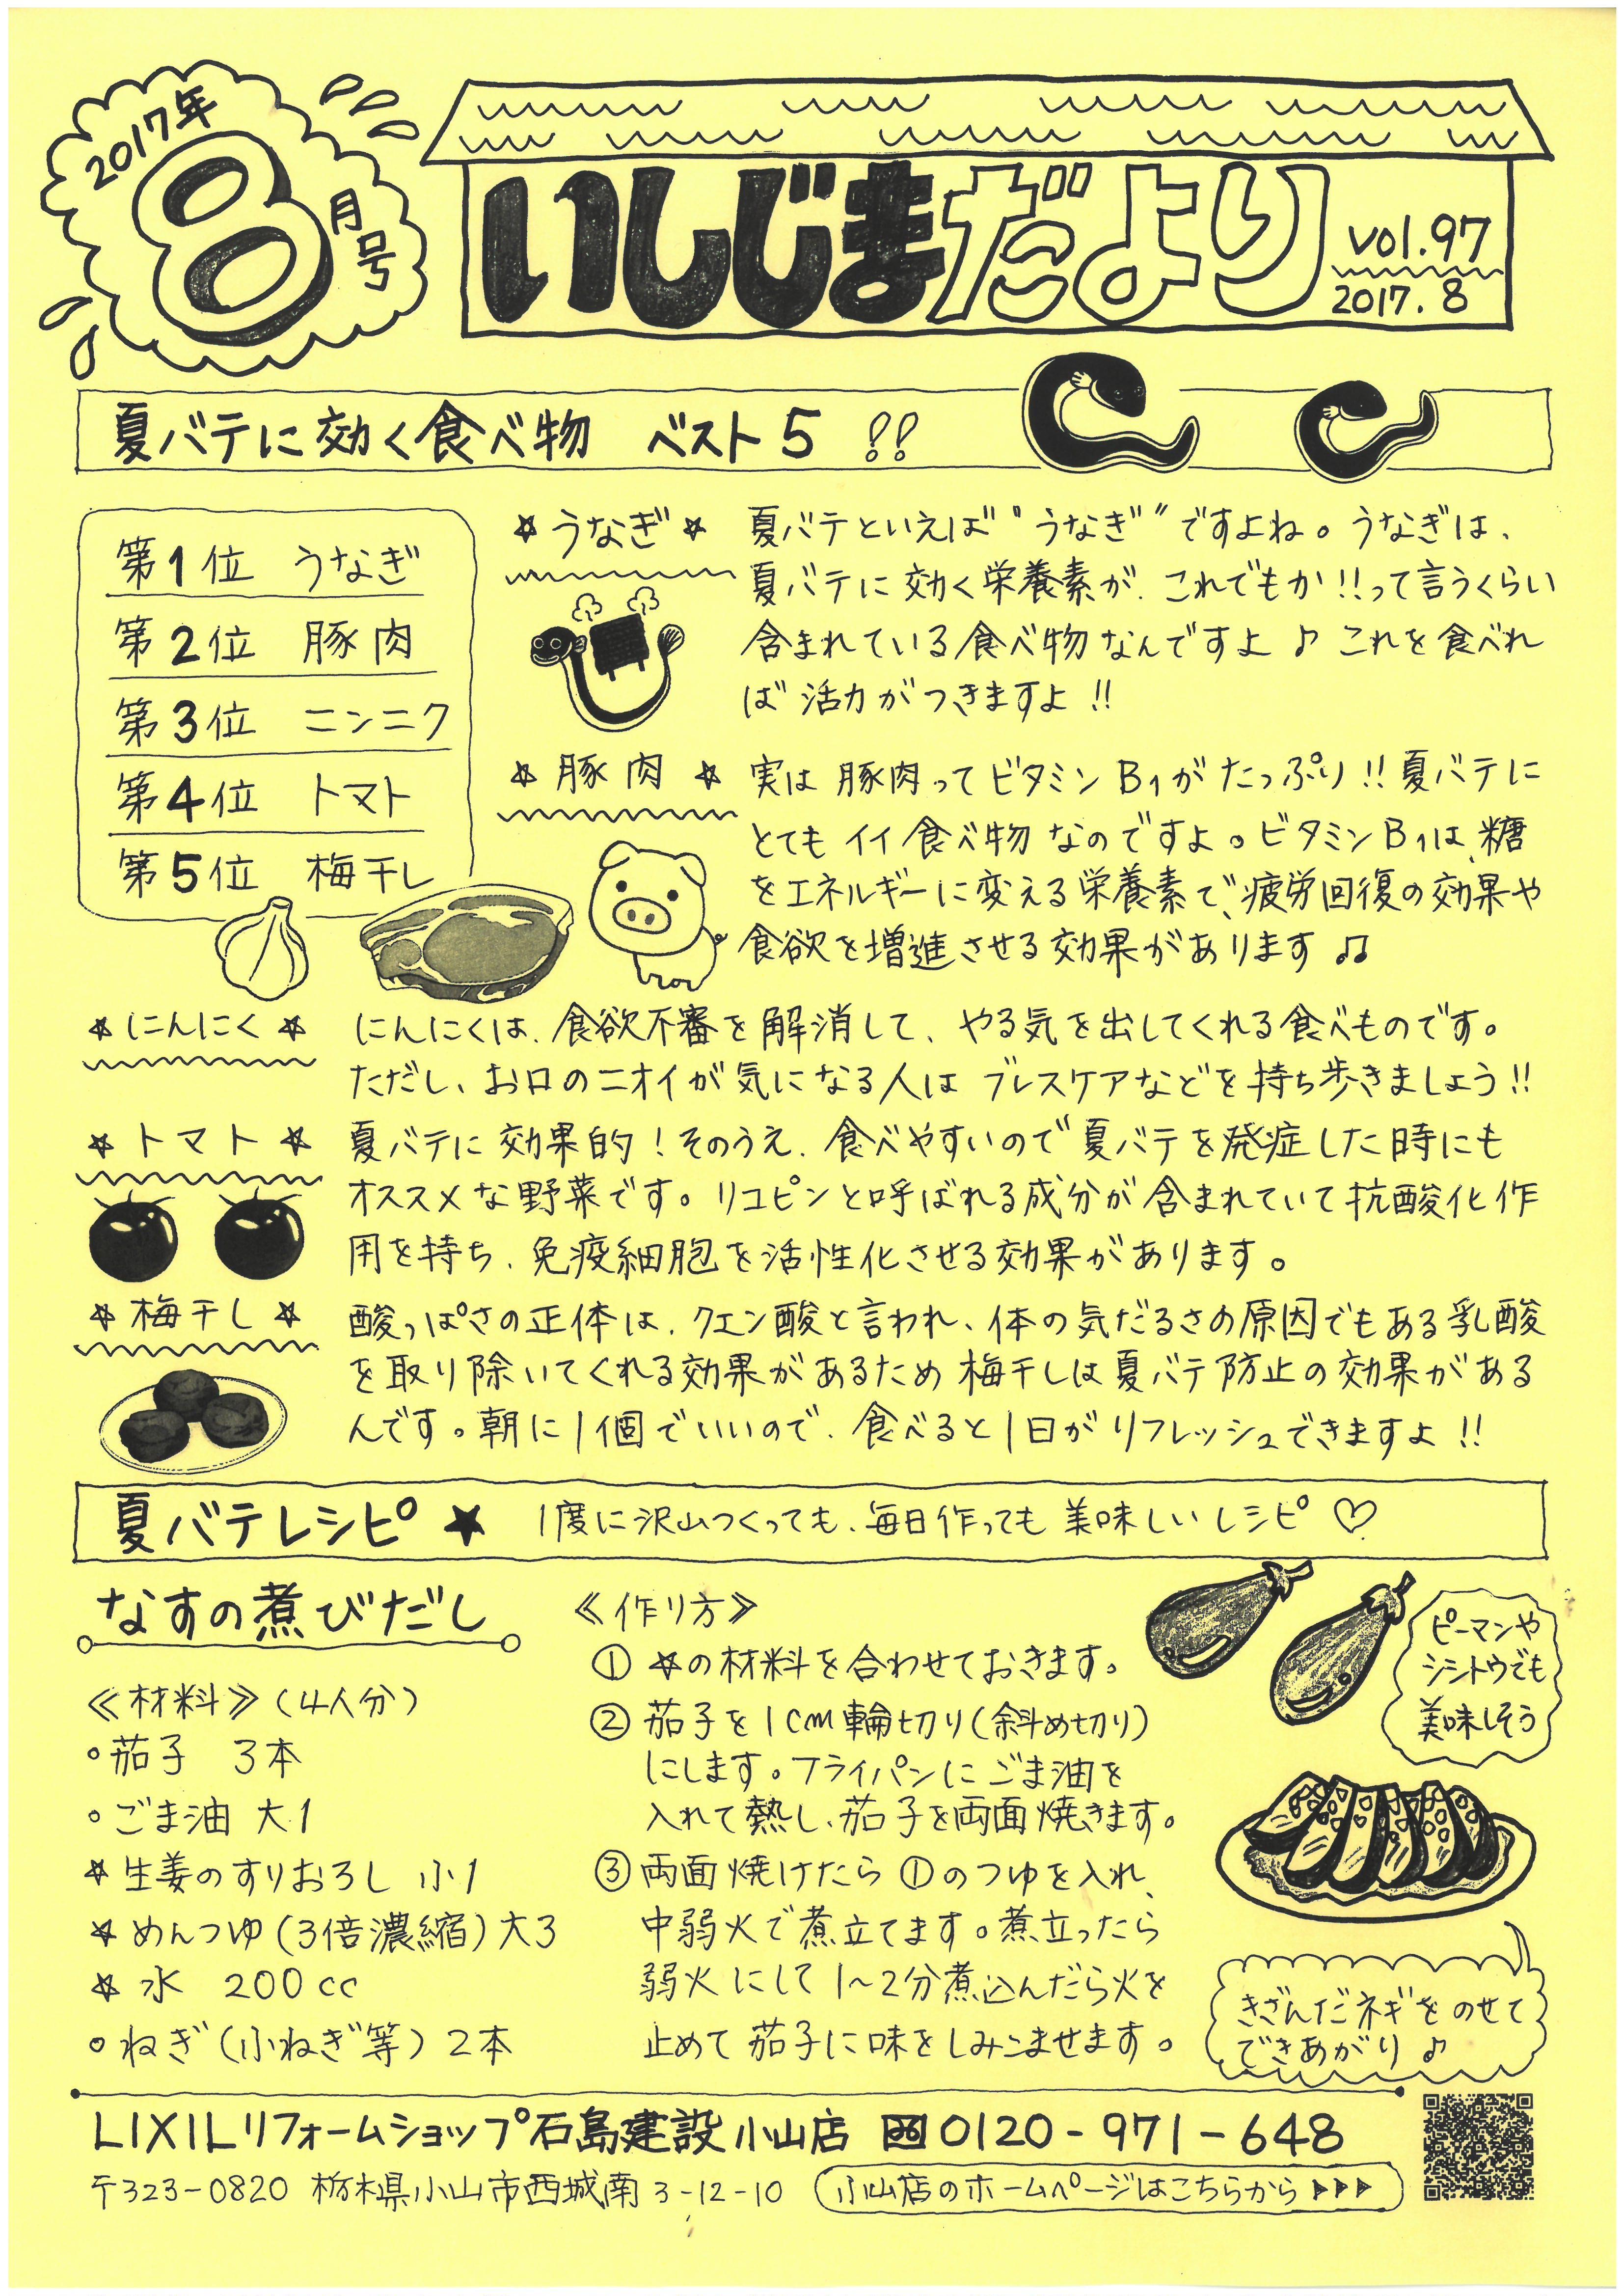 2017年
8月号
いしじまだより
vol.97
2017.8
夏バテに効く食べ物 ベスト5 !!
第1位 うなぎ
第2位 豚肉
第3位 ニンニク
第4位 トマト
第5位 梅干し
☆うなぎ☆
夏バテといえば"うなぎ"ですよね。うなぎは、
夏バテに効く栄養素が、これでもか!!って言うくらい
含まれている食べ物なんですよ♪これを食べれ
ば活力がつきますよ!!
☆豚肉☆
実は豚肉ってビタミンB1がたっぷり!!夏バテに
とてもイイ食べ物なのですよ。ビタミンB1は、糖
をエネルギーに変える栄養素で、疲労回復の効果や
食欲を増進させる効果があります♫
☆にんにく☆
にんにくは、食欲不審を解消して、やる気を出してくれる食べものです。
ただし、お口のニオイが気になる人はブレスケアなどを持ち歩きましょう!!
☆トマト☆
夏バテに効果的!そのうえ、食べやすいので夏バテを発症した時にも
オススメな野菜です。リコピンと呼ばれる成分が含まれていて抗酸化作
用を持ち、免疫細胞を活性化させる効果があります。
☆梅干し☆
酸っぱさの正体は、クエン酸と言われ、体の気だるさの原因でもある乳酸
を取り除いてくれる効果があるため梅干しは夏バテ防止の効果がある
んです。朝に1個でいいので、食べると1日がリフレッシュできますよ!!
夏バテレシピ★ 1度に沢山つくっても、毎日作っても美味しいレシピ♡
なすの煮びだし
≪材料≫(4人分)
○茄子 3本
○ごま油 大1
☆生姜のすりおろし 小1
☆めんつゆ(3倍濃縮)大3
☆水 200cc
○ねぎ(小ねぎ等)2本
≪作り方≫
①☆の材料を合わせておきます。
②茄子を1cm輪切り(斜め切り)
にします。フライパンにごま油を
入れて熱し、茄子を両面焼きます。
③両面焼けたら①のつゆを入れ、
中弱火で煮立てます。煮立ったら
弱火にして1~2分煮込んだら火を
止めて茄子に味をしみこませます。
ピーマンや
シシトウでも
美味しそう
きざんだネギをのせて
できあがり♪
LIXILリフォームショップ石島建設小山店 0120-971-648
〒323-0820 栃木県小山市西城南3-12-10
小山店のホームページはこちらから▶▶▶